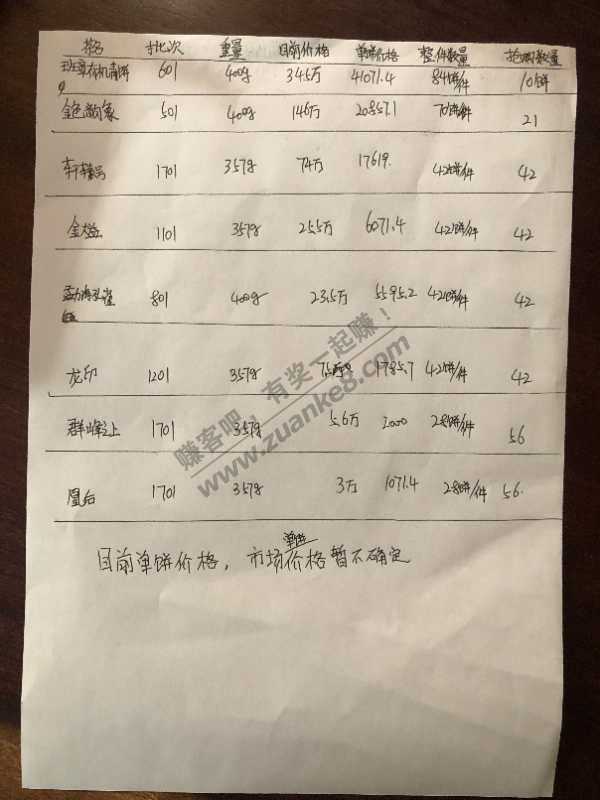 茶名 批次 重量 目前价格 单饼价格 整件数量 抢购数量
班章有机青饼 601 400g 345万 41071.4 84饼/件 10饼
金色韵象 501 400g 146万 20857.1 70饼/件 21
轩辕号 1701 357g 74万 17619. 42饼/件 42
金大益 1101 357g 25.5万 6071.4 42饼/件 42
勐海孔雀 801 400g 23.5万 5595.2 42饼/件 42
龙印 1201 357g 7.5万 1785.7 42饼/件 42
群峰之上 1701 357g 5.6万 2000 28饼/件 56
凰后 1701 357g 3万 1071.4 28饼/件 56.
目前单饼价格，市场单饼价格暂不确定
赚客吧，有奖一起赚！
www.zuanke8.com